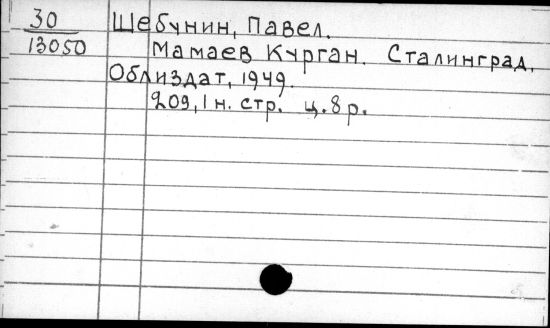 30 Шебунин, Павел.
13050 Мамаев Курган. Сталинград,
Облиздат, 1949.
209, 1 н. стр. ц. 8 р.